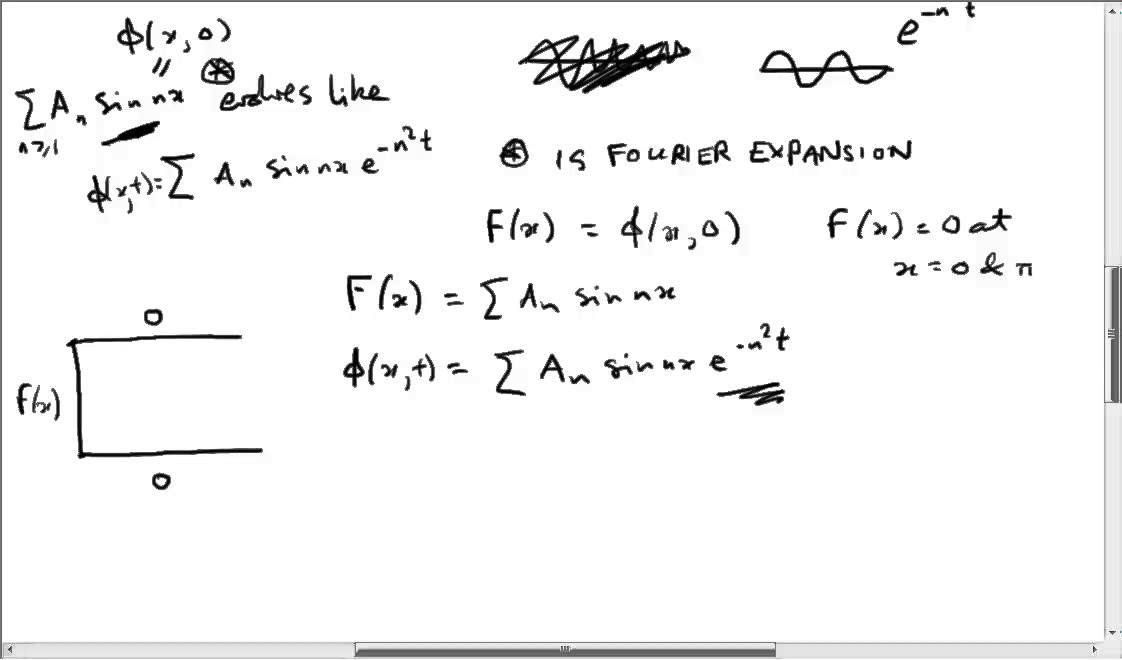 ϕ(x,0)
"
⊛
Σ Aₙ sin nx evolves like
n≥1
ϕ(x,t)=Σ Aₙ sin nx e^{-n²t}
e^{-n² t}
⊛ IS FOURIER EXPANSION
F(x) = ϕ(x,0) F(x) = 0 at
x = 0 & π
F(x) = Σ Aₙ sin nx
ϕ(x,t) = Σ Aₙ sin nx e^{-n²t}
0
F(x)
0